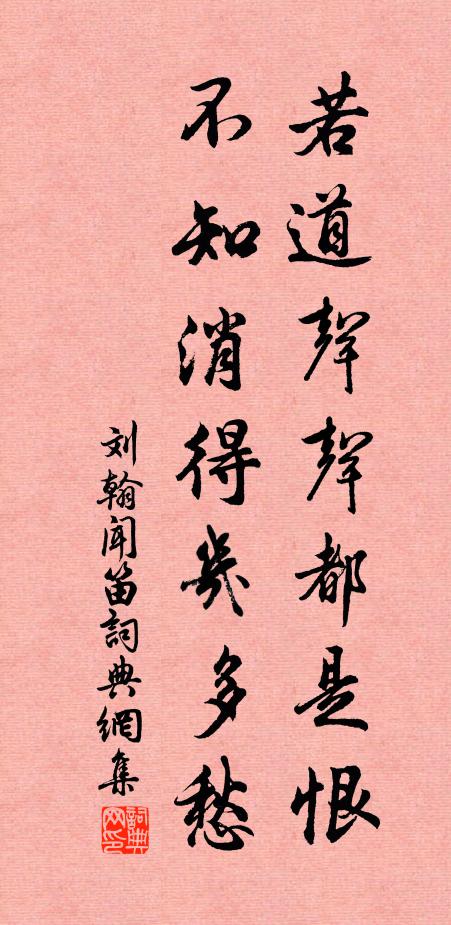 若道聲聲都是恨
不知消得幾多愁
刘翰闻笛詞典網集
詞典网印